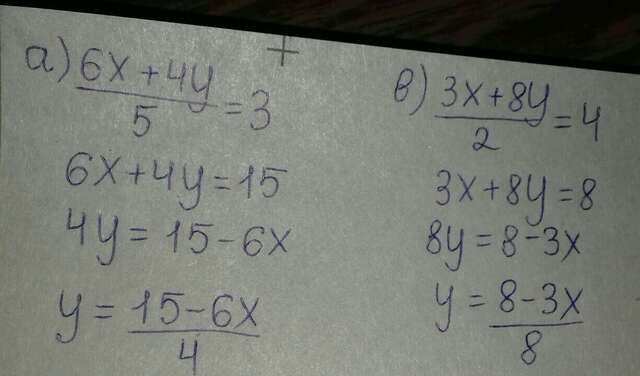 +
а) (6x+4y)/5 = 3
6x+4y=15
4y = 15-6x
y = (15-6x)/4
в) (3x+8y)/2 = 4
3x+8y=8
8y=8-3x
y = (8-3x)/8